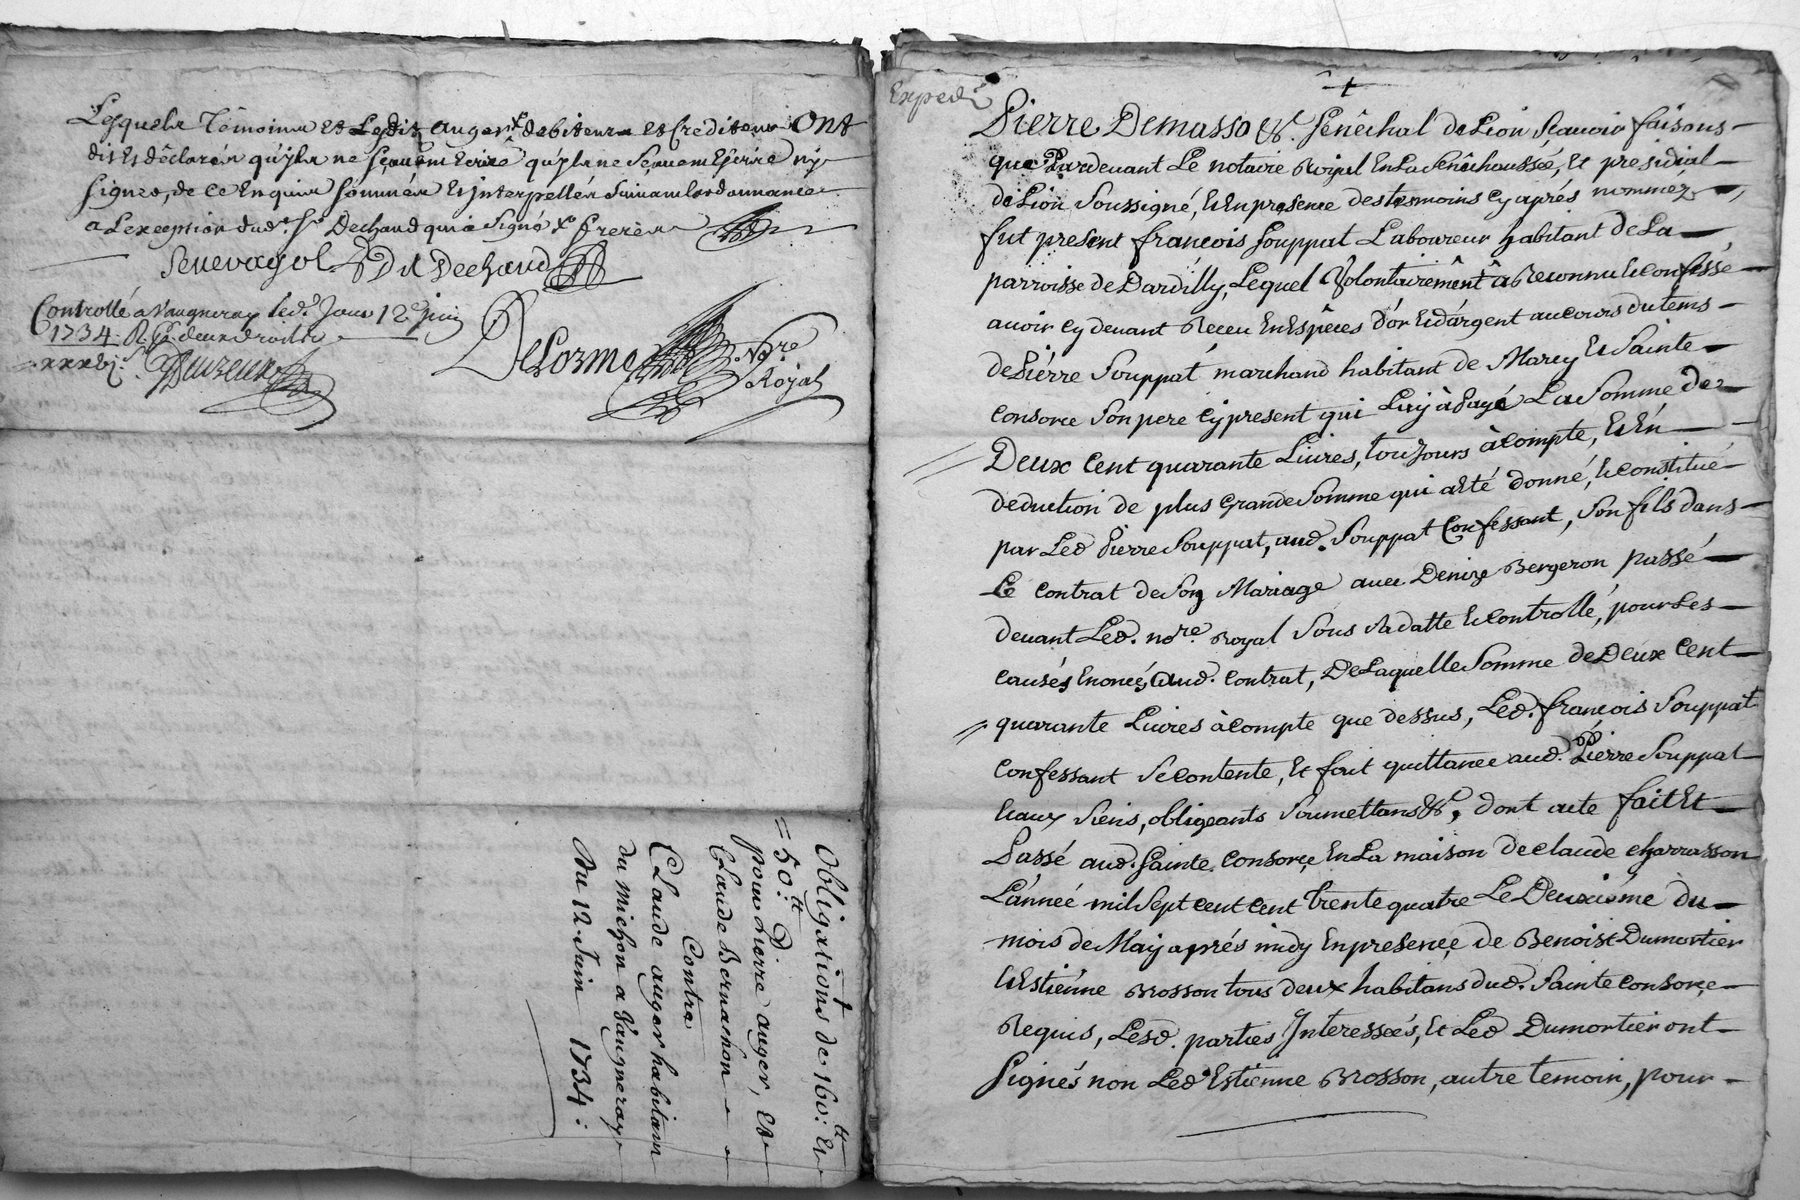 Lesquels Témoins et Lesdits auger debiteur et Crediteur ONt
dit et déclarén qu'yls ne Sçauem Ecrire ny
Signer, de ce Enquis Sommés et interpellés Suivam Lordonnance
a Lexception dud. Sr. Dechaud qui a Signé
Dechaud
Controllé a Vaugneray led. Jour 12e juin
1734 R. deux droits
DeLorme Nore
Royal
Obligations de 160:tt Et
= 50:tt D
pour pierre auger, Et
Claude Bernachon
Contre
Claude auger habitam
du michon a Vaugneray
Du 12 Juin 1734:
Expedié
+
Pierre Demasso &c. Senêchal de Lion Scauoir faisons
que Pardeuant Le notaire Royal En La Senêchaussée, et presidial
de Lion Soussigné, Et En presence des temoins cy aprés nommèz
fut present francois Souppat Laboureur habitant de La
parroisse de Dardilly, Lequel Volontairemênt â Reconnu et confessé
auoir cy deuant Receu En Espêces d'or Et d'argent au cours du têms
de Piérre Souppat marchand habitant de Marcy Et Sainte
Consorce Son pere Cy present qui Luy à Payé La Somme de
Deux Cent quarante Liures, toujours à compte, Et En
deduction de plus Grande Somme qui a êté donné, Et constitué
par Led Pierre Souppat, aud. Souppat Confessant, Son fils dans
Le Contrat de Son Mariage auec Denize Bergeron passé
deuant Led. nore. Royal Sous Sa datte Et Controllé, pour Les
causés Enoncés Aud. Contrat, De Laquelle Somme de Deux Cent
quarante Liures à compte que dessus, Led. françois Souppat
Confessant Se contente, Et fait quittance aud. Pierre Souppat
Et aux Siens, obligeants Soumettans &c, dont acte fait Et
Passé aud. Sainte Consorce En La maison de claude charrasson
L'année mil Sept cent cent trente quatre Le Deuxiéme du
mois de May aprés midy En presence, de Benoist Dumortier
Et Estiénne Brosson tous deux habitans dud. Sainte Consorce
Requis, Lesd. parties Interessées, Et Led Dumortier ont
Signés non Led Estienne Brosson, autre temoin, pour